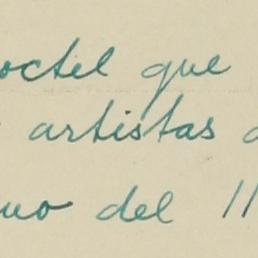 octel que
artistas
del 11